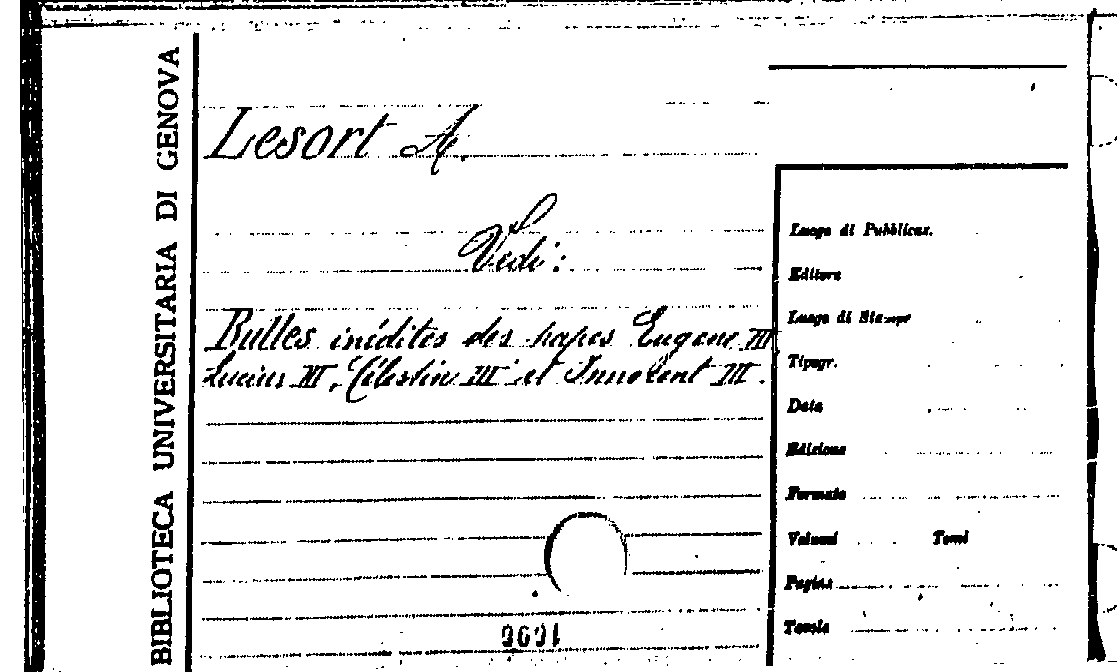 BIBLIOTECA UNIVERSITARIA DI GENOVA
Lesort A.
Vedi:
Bulles inédites des papes Eugene III
Lucius III, Célestin III et Innocent III.
Luogo di Pubblicaz.
Editore
Luogo di Stampa
Tipogr.
Data
Edizione
Formato
Volumi Tomi
Pagine
Tavole